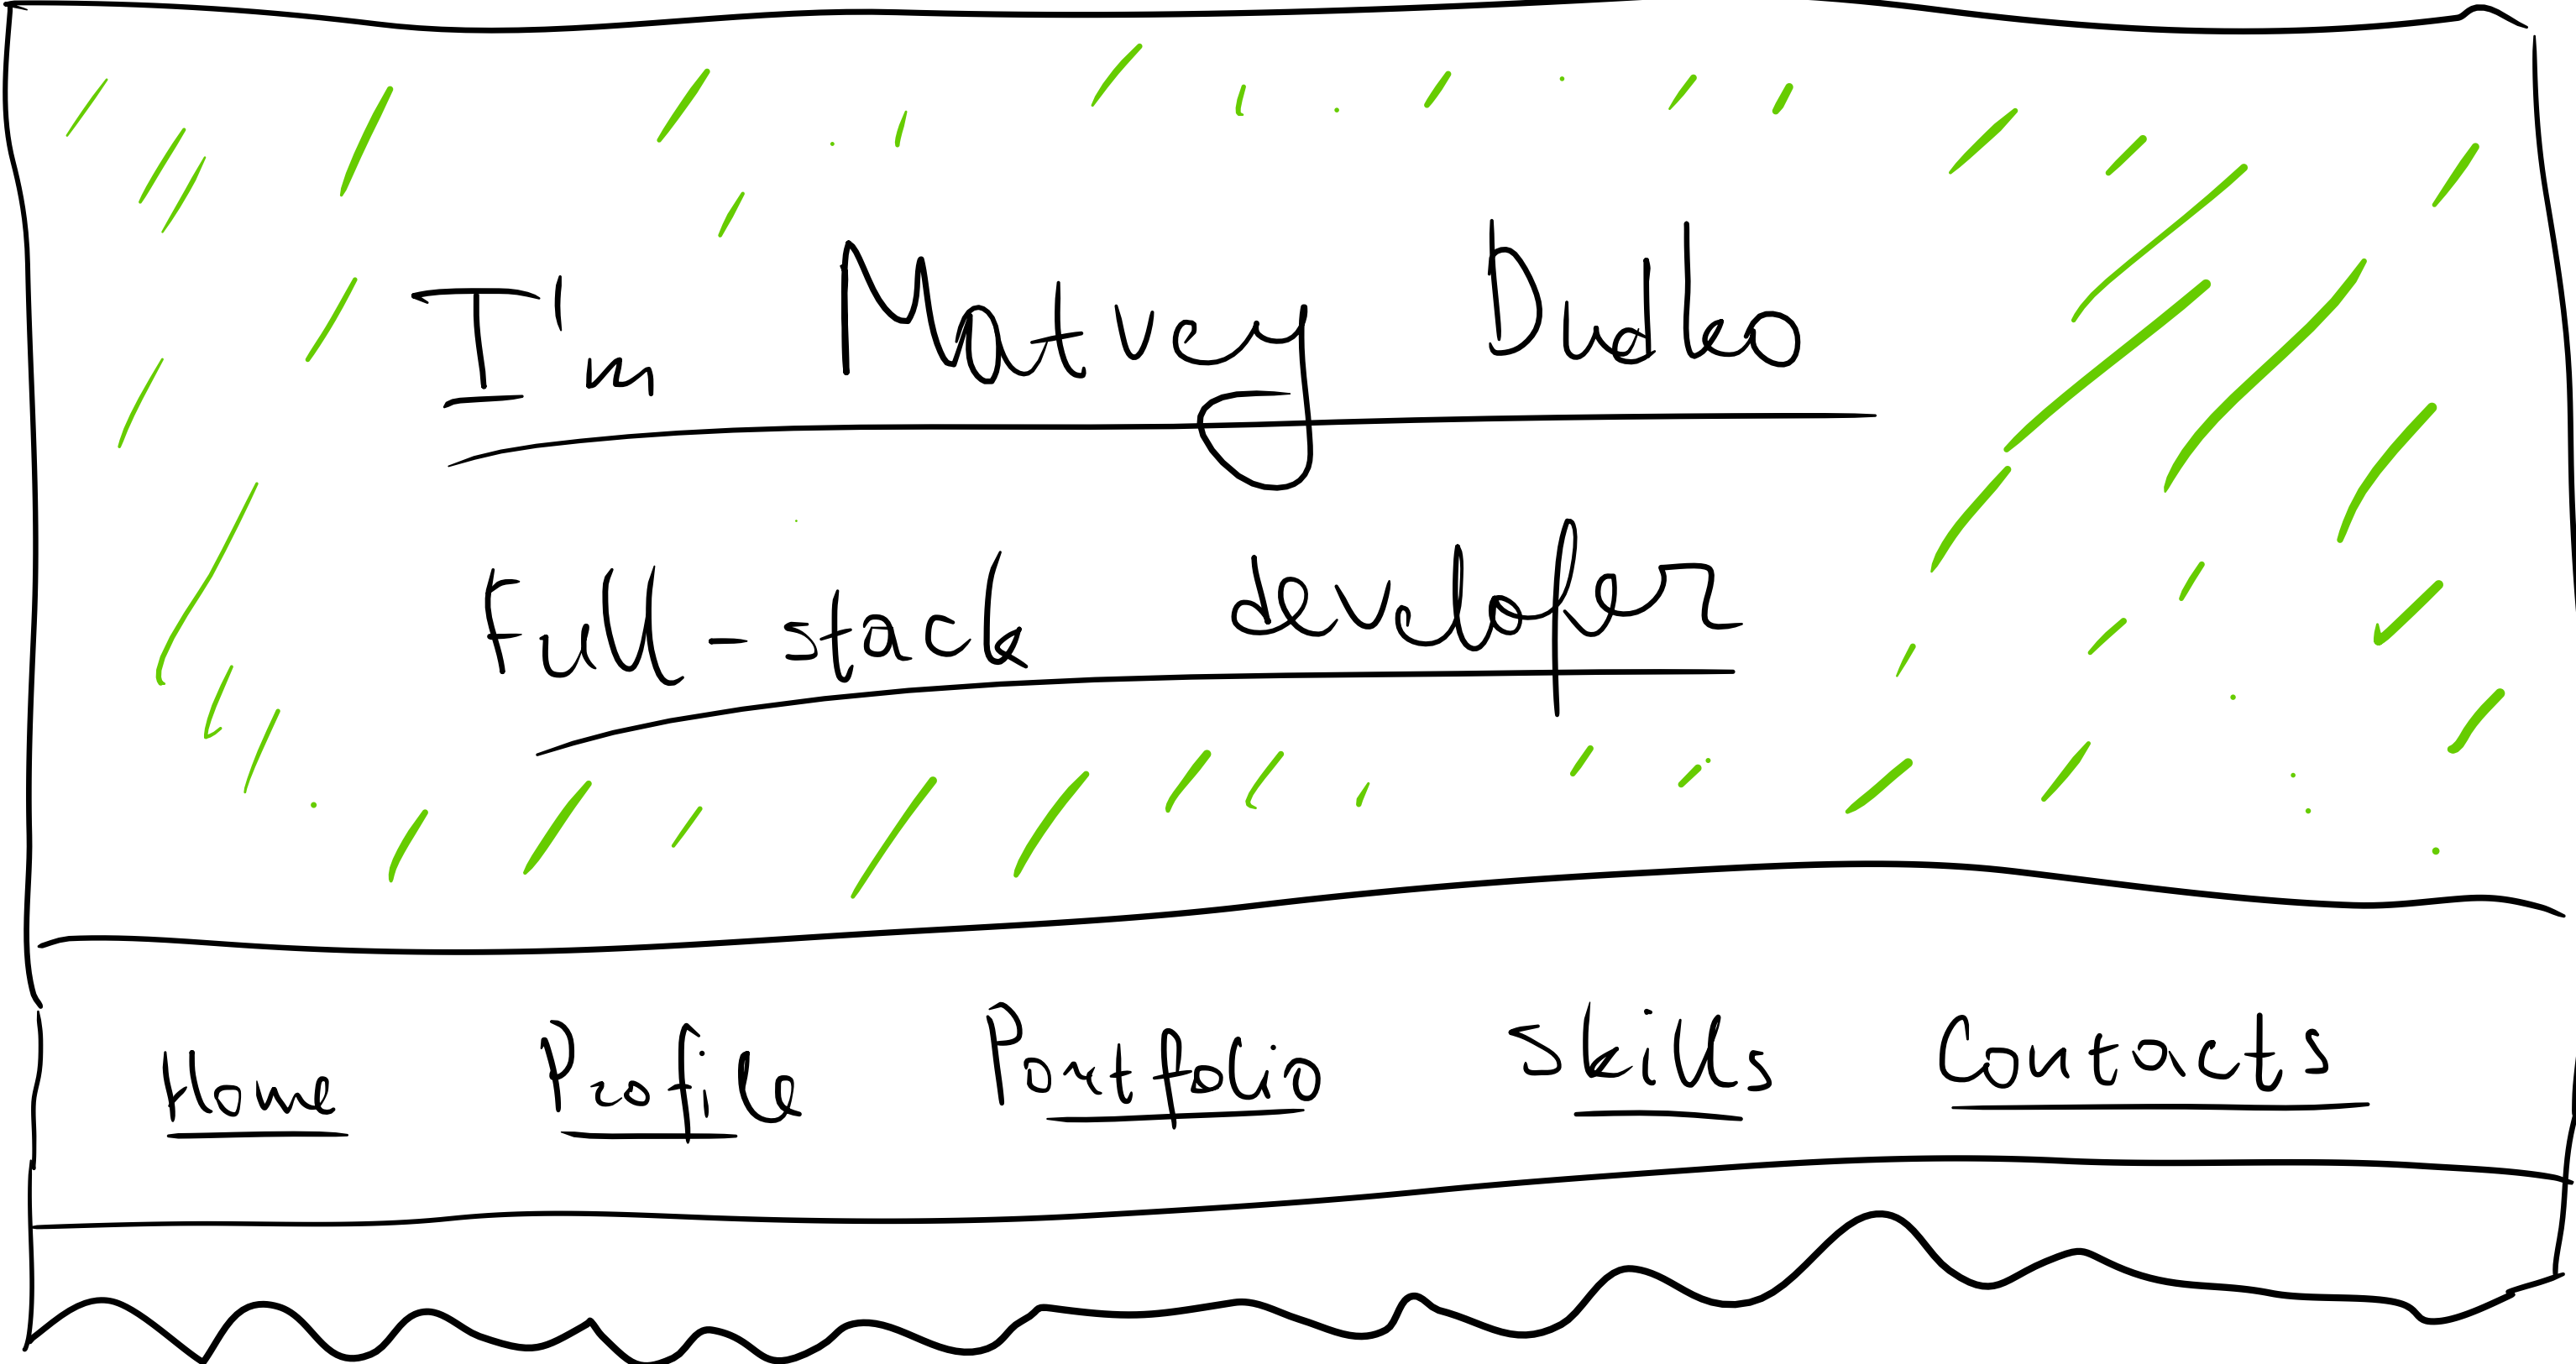 I'm Matvey Dudko
Full-stack developer
Home Profile Portfolio Skills Contacts